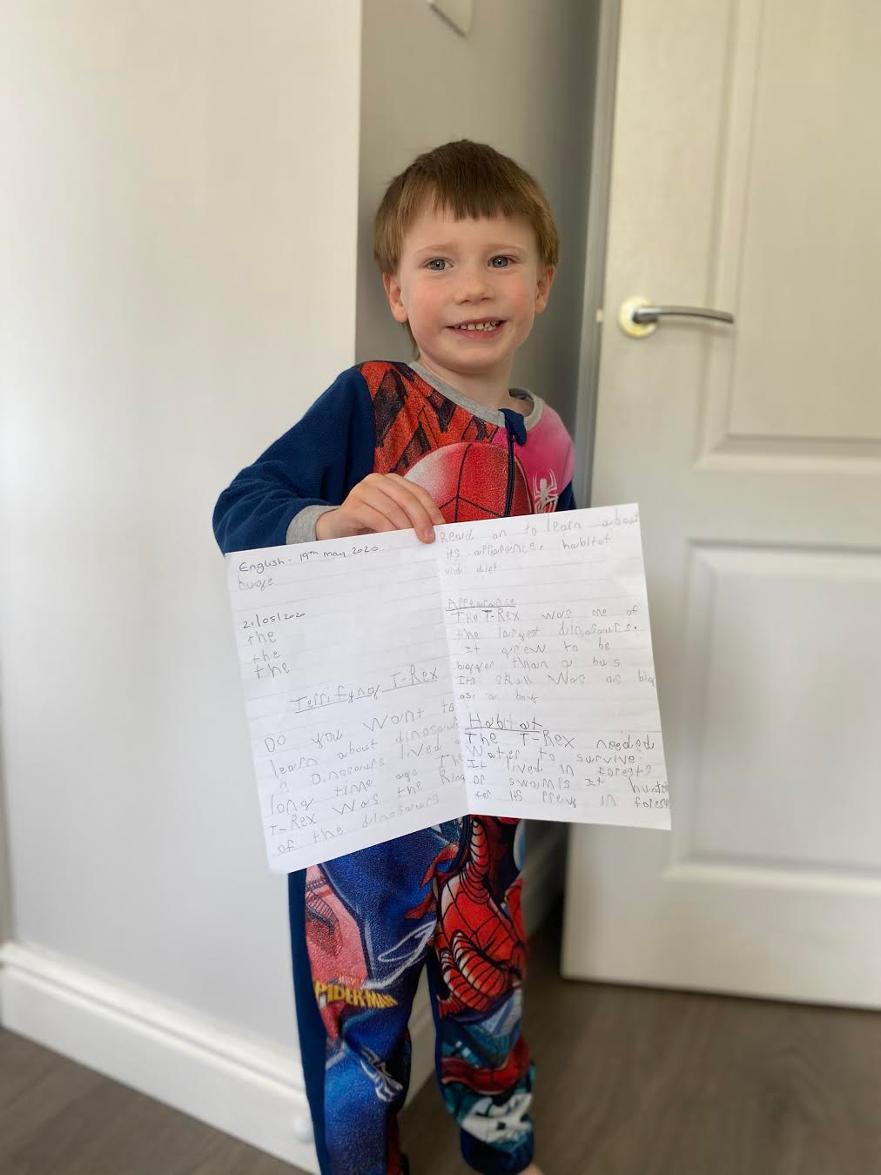 English - 19th may 2020
21/05/2020
the
the
the
Terrifying T-Rex
Do you want to
learn about dinosaurs
? Dinosaurs lived a
long time ago The
T-Rex was the King
of the dinosaurs
Read on to learn about
its apperence, habitat
and diet
Apperance
The T-Rex was one of
the largest dinosaurs.
It grew to be
bigger than a bus
Its skull was as big
as a
Habitat
The T-Rex needed
Water to survive
It lived in forest?
or swamps It
for its in forest
SPIDER-MAN